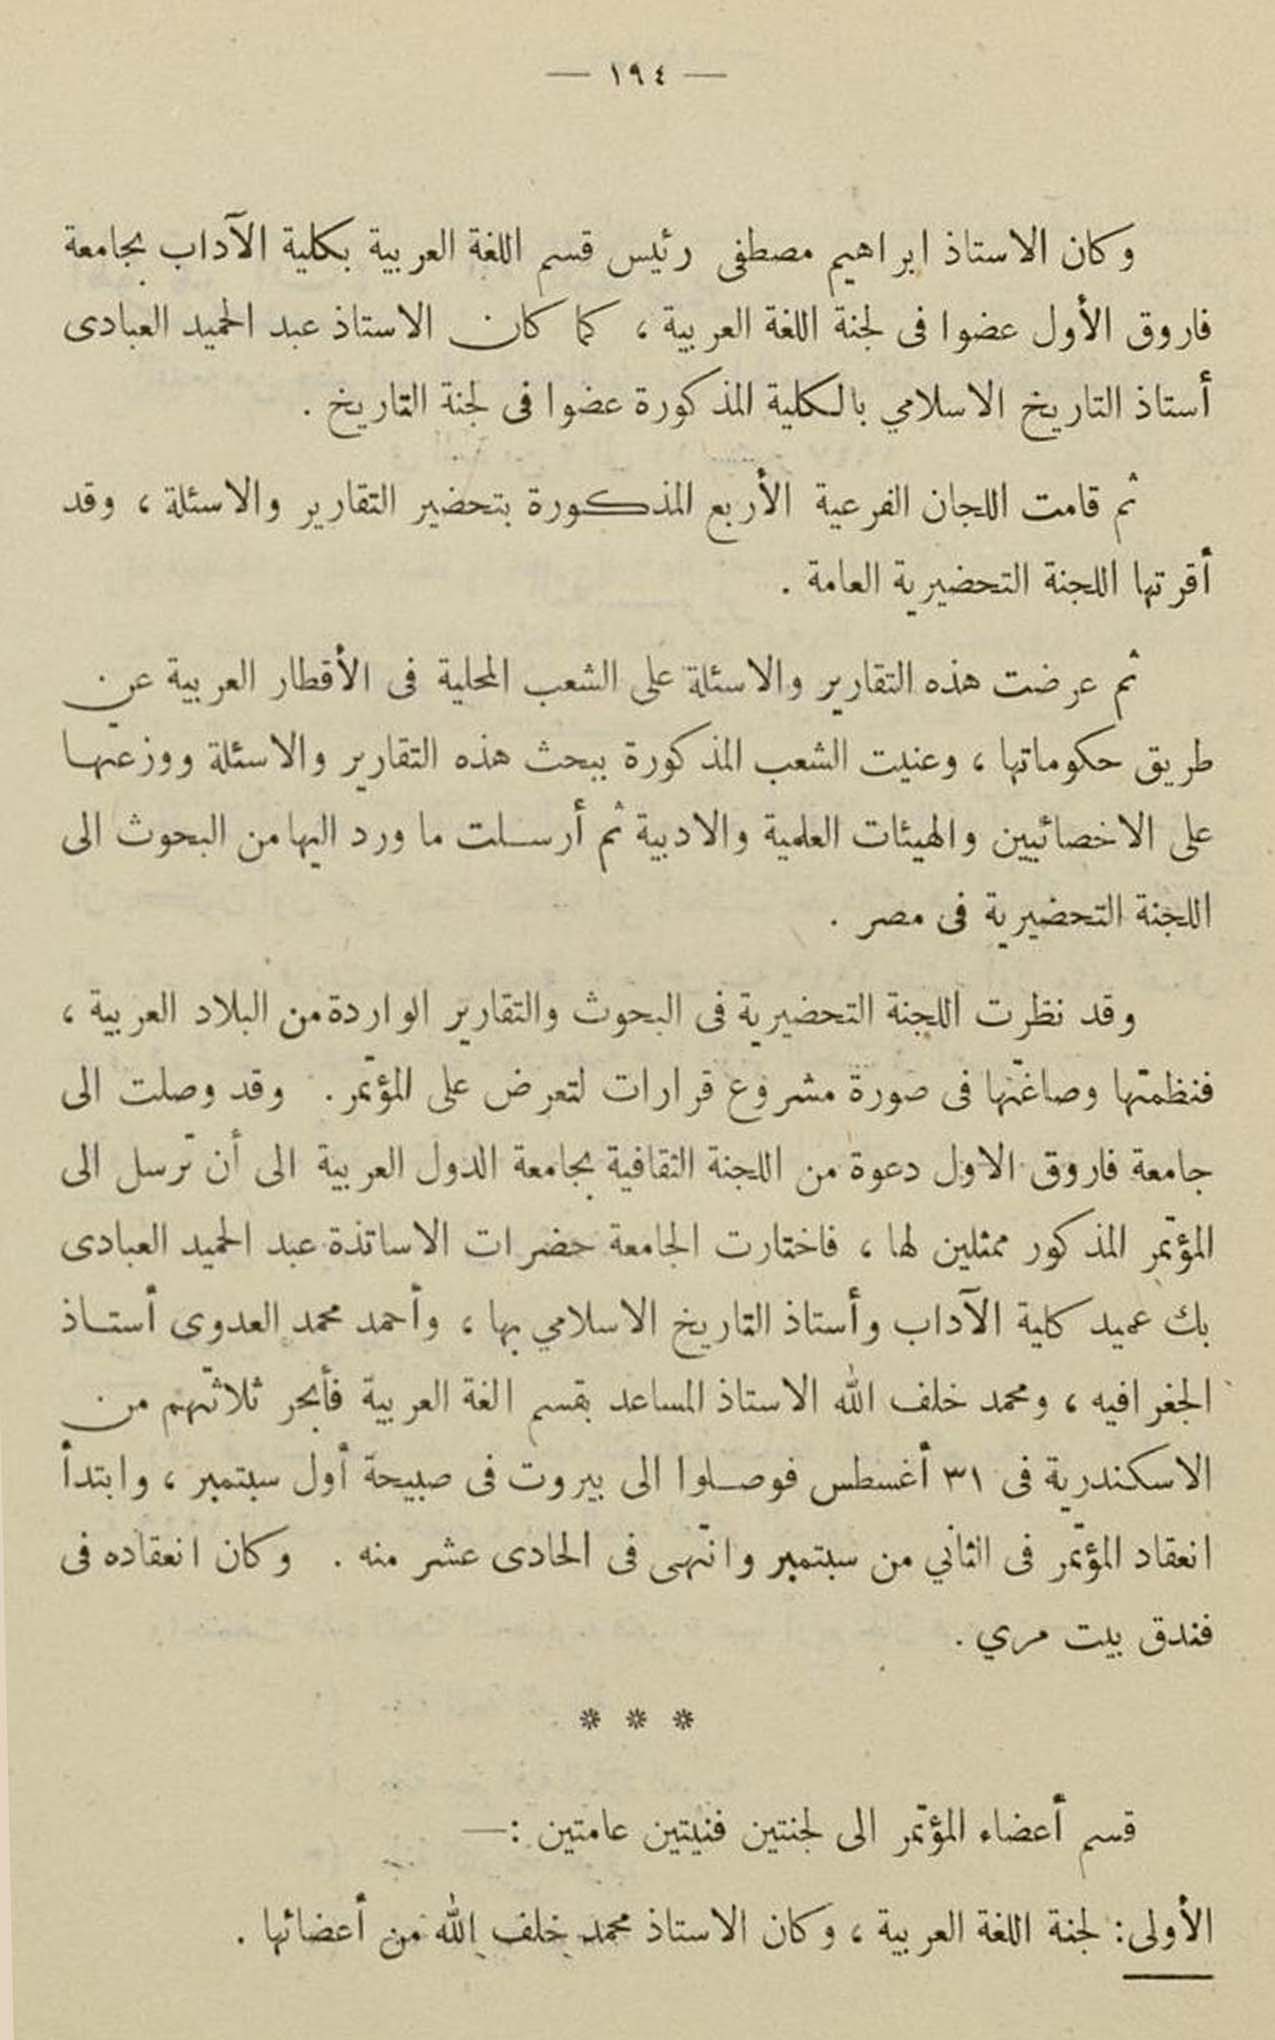 — ١٩٤ —
وكان الاستاذ ابراهيم مصطفى رئيس قسم اللغة العربية بكلية الآداب بجامعة
فاروق الأول عضوا فى لجنة اللغة العربية ، كما كان الاستاذ عبد الحميد العبادى
أستاذ التاريخ الاسلامي بالكلية المذكورة عضوا فى لجنة التاريخ .
ثم قامت اللجان الفرعية الأربع المذكورة بتحضير التقارير والاسئلة ، وقد
أقرتها اللجنة التحضيرية العامة .
ثم عرضت هذه التقارير والاسئلة على الشعب المحلية فى الأقطار العربية عن
طريق حكوماتها ، وعنيت الشعب المذكورة ببحث هذه التقارير والاسئلة ووزعتها
على الاخصائيين والهيئات العلمية والادبية ثم أرسلت ما ورد اليها من البحوث الى
اللجنة التحضيرية فى مصر .
وقد نظرت اللجنة التحضيرية فى البحوث والتقارير الواردة من البلاد العربية ،
فنظمتها وصاغتها فى صورة مشروع قرارات لتعرض على المؤتمر . وقد وصلت الى
جامعة فاروق الاول دعوة من اللجنة الثقافية بجامعة الدول العربية الى أن ترسل الى
المؤتمر المذكور ممثلين لها ، فاختارت الجامعة حضرات الاساتذة عبد الحميد العبادى
بك عميد كلية الآداب وأستاذ التاريخ الاسلامي بها ، وأحمد محمد العدوى أستاذ
الجغرافيه ، ومحمد خلف الله الاستاذ المساعد بقسم الغة العربية فأبحر ثلاثتهم من
الاسكندرية فى ٣١ أغسطس فوصلوا الى بيروت فى صبيحة أول سبتمبر ، وابتدأ
انعقاد المؤتمر فى الثاني من سبتمبر وانتهى فى الحادى عشر منه . وكان انعقاده فى
فندق بيت مري .
* * *
قسم أعضاء المؤتمر الى لجنتين فنيتين عامتين :—
الأولى : لجنة اللغة العربية ، وكان الاستاذ محمد خلف الله من أعضائها .